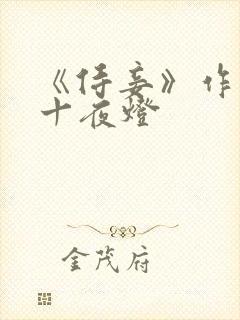 《侍妾》作
十夜燈
金茂府